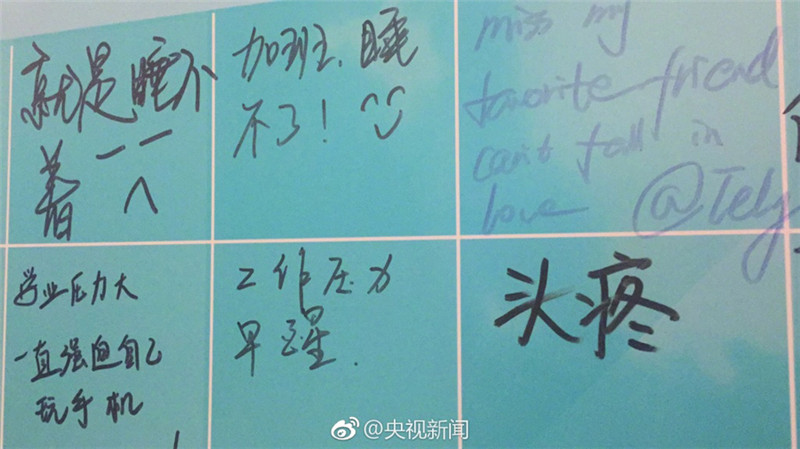 就是睡不
着
加班、睡
不了！
miss my
favorite friend
can't fall in
love @Tely
学业压力大
一直强迫自己
玩手机
工作压力
早醒.
头疼
@央视新闻